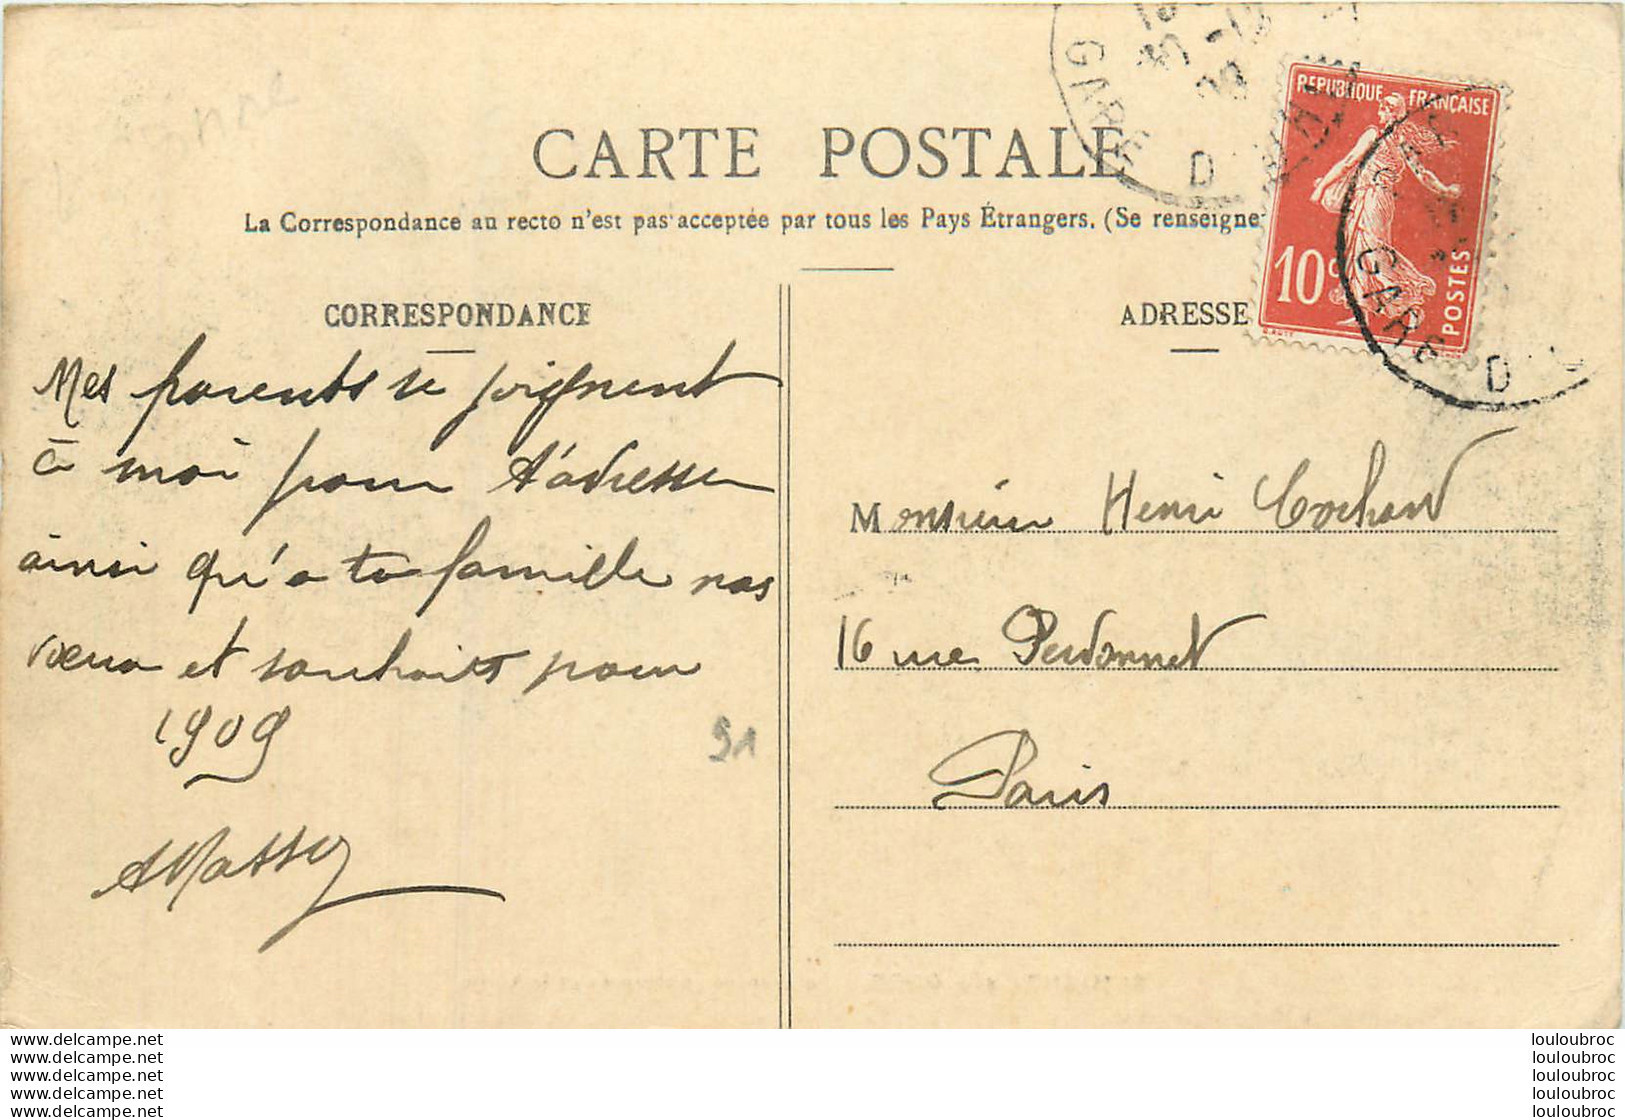 CARTE POSTALE
La Correspondance au recto n'est pas acceptée par tous les Pays Étrangers. (Se renseigne
REPUBLIQUE FRANÇAISE
10c
POSTES
GARE D
GARE D
CORRESPONDANCE
Mes parents se joignent
à moi pour t'adresser
ainsi qu'a ta famille nos
vœux et souhaits pour
1909
AMassy
91
ADRESSE
Monsieur Henri Cochard
16 rue Perdonnet
Paris
www.delcampe.net
www.delcampe.net
www.delcampe.net
www.delcampe.net
www.delcampe.net
louloubroc
louloubroc
louloubroc
louloubroc
louloubroc